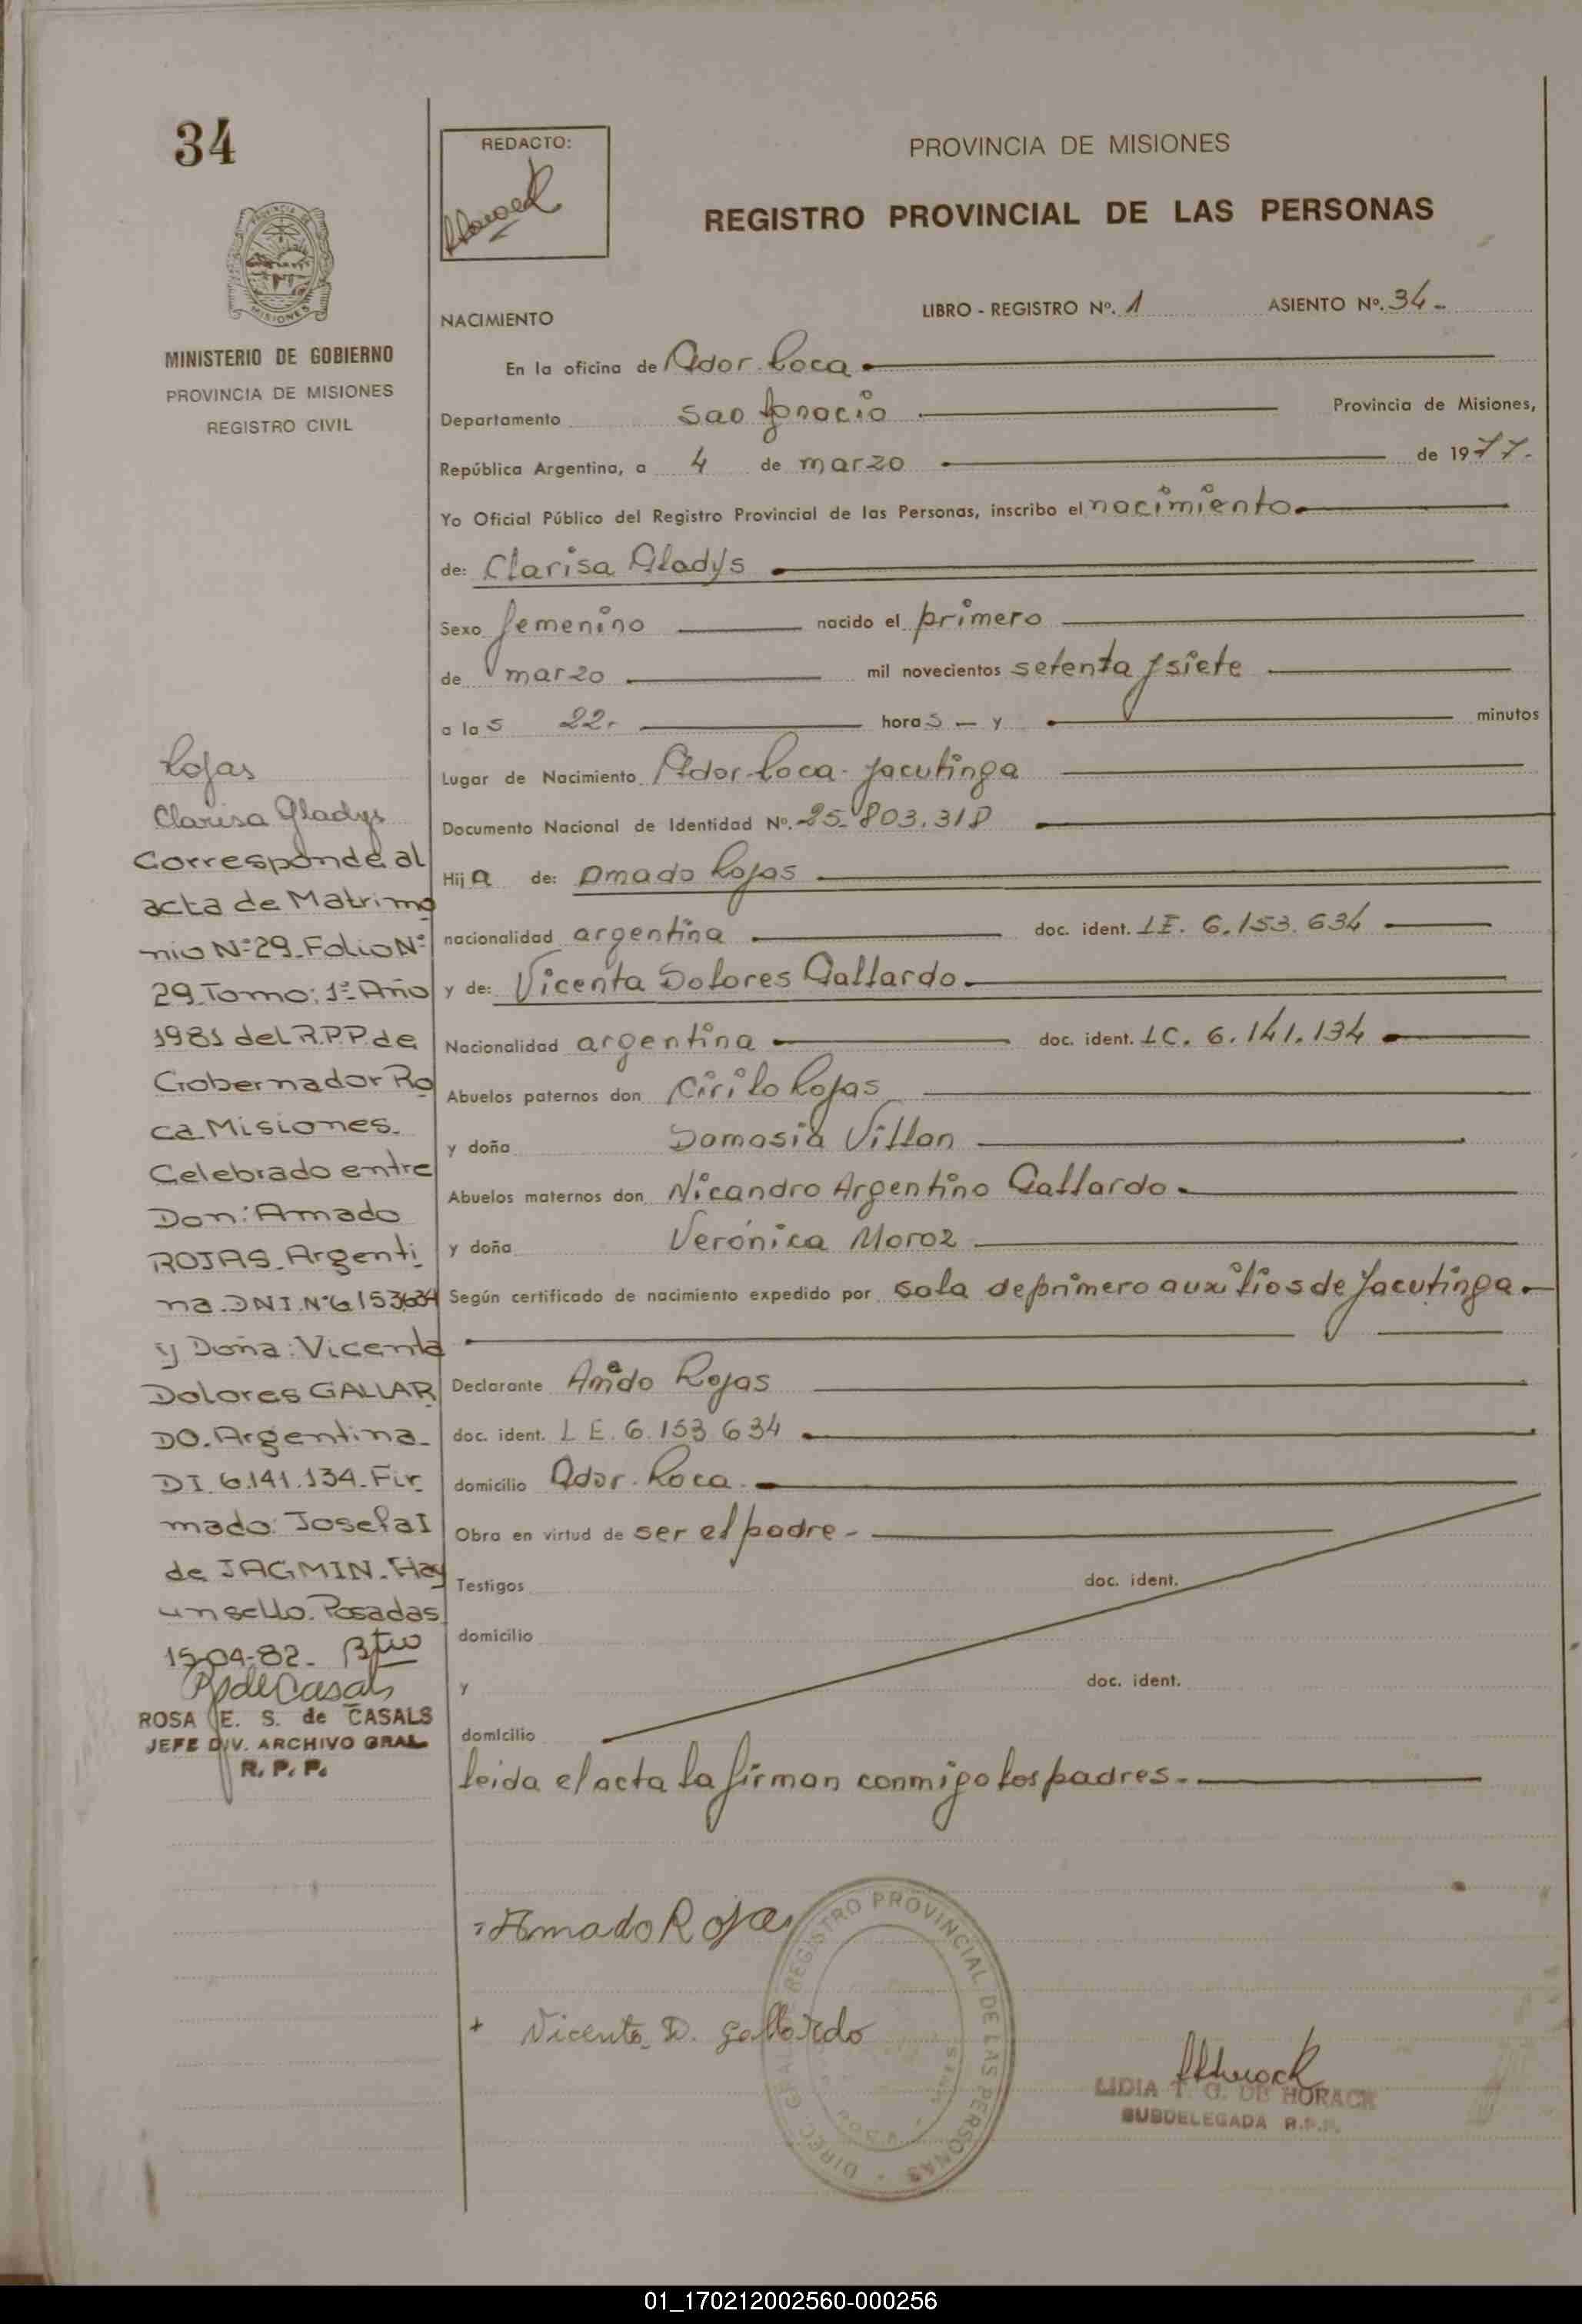 34
MINISTERIO DE GOBIERNO
PROVINCIA DE MISIONES
REGISTRO CIVIL
REDACTO:
PROVINCIA DE MISIONES
REGISTRO PROVINCIAL DE LAS PERSONAS
NACIMIENTO
LIBRO - REGISTRO Nº. 1 ASIENTO Nº. 34-
En la oficina de Gdor. Roca
Departamento San Ignacio Provincia de Misiones,
República Argentina, a 4 de marzo de 1977.
Yo Oficial Público del Registro Provincial de las Personas, inscribo el nacimiento
de: Clarisa Gladys
Sexo femenino nacido el primero
de marzo mil novecientos setenta y siete
a las 22- horas — y minutos
Lugar de Nacimiento Gdor. Roca - Jacutinga
Documento Nacional de Identidad Nº. 25.803.318
Hija de: Amado Rojas
nacionalidad argentina doc. ident. LE. 6.153.634
y de: Vicenta Dolores Gallardo
Nacionalidad argentina doc. ident. LC. 6.141.134
Abuelos paternos don Cirilo Rojas
y doña Damasia Villan
Abuelos maternos don Nicandro Argentino Gallardo
y doña Verónica Moroz
Según certificado de nacimiento expedido por sala de primero auxilios de Jacutinga
Declarante Amado Rojas
doc. ident. L E. 6.153 634
domicilio Gdor. Roca
Obra en virtud de ser el padre-
Testigos doc. ident.
domicilio
y doc. ident.
domicilio
leida el acta la firman conmigo los padres.
Amado Rojas
Vicenta D. Gallardo
DIREC. GRAL. REGISTRO PROVINCIAL DE LAS PERSONAS
LIDIA T. G. DE HORACK
SUBDELEGADA R.P.P.
Rojas
Clarisa Gladys
Corresponde al
acta de Matrimo
nio Nº 29. Folio Nº
29. Tomo: 1º Año
1981 del R.P.P. de
Gobernador Ro
ca Misiones.
Celebrado entre
Don: Amado
ROJAS. Argenti
na. DNI. Nº 6153634
y Doña: Vicenta
Dolores GALLAR
DO. Argentina.
DI. 6.141.134. Fir
mado: Josefa I
de JAGMIN. Hay
un sello. Posadas
15-04-82.
ROSA E. S. de CASALS
JEFE DIV. ARCHIVO GRAL
R. P. P.
01_170212002560-000256